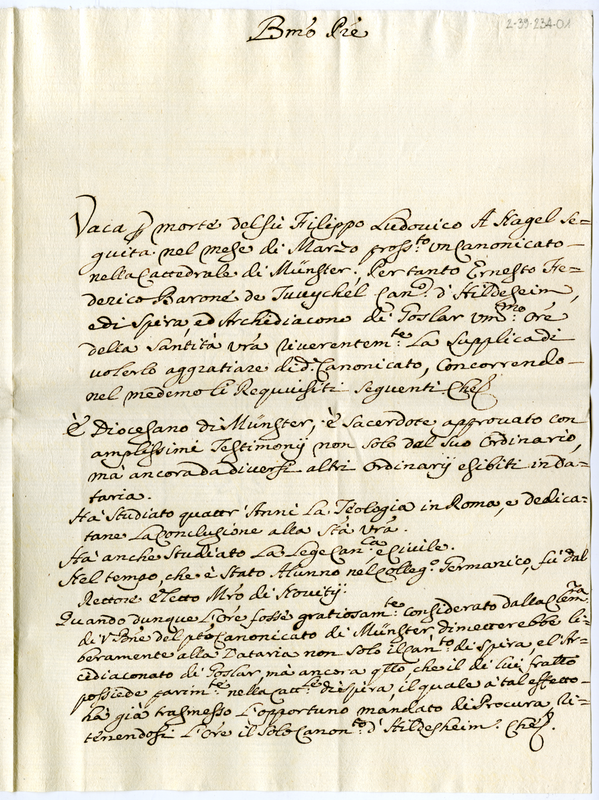 2-39-234-01
Bmo Pre
Vaca p morte del fù Filippo Ludovico A Nagel se-
guita nel mese di Marzo pross:to un Canonicato
nella Cattedrale di Münster; Per tanto Ernesto Fe-
derico Barone de Twychel Can:o d'Hildesheim,
e di Spira, ed Archidiacono di Goslar Um:mo Ore
della Santità Vra riverentem:te La supplica di
volerlo aggratiare di d:o Canonicato, concorrendo
nel medemo li Requisiti seguenti Che
È Diocesano di Münster, è Sacerdote approvato con
amplissimi Testimonij non solo dal suo Ordinario,
mà ancora da diversi altri Ordinarij esibiti in Da-
taria.
Hà studiato quattr'Anni La Teologia in Roma, e dedica-
tane La Conclusione alla Stà Vrà.
Hà anche studiato La Lege Can:ca e Civile.
Nel tempo, che è stato Alunno nel Colleg:o Germanico, fù dal
Rettore eletto Mro di Novitij.
Quando dunque L'Ore fosse gratiosam:te considerato dalla Clem:za
di V Bne del pto Canonicato di Münster, dimetterebbe li-
beramente alla Dataria non solo il Can:to di Spira e l'Ar-
cidiaconato di Goslar, mà ancora qllo che il di lui frallo
possiede parim:te nella Catt:le di Spira, il quale à tal effetto
hà già trasmesso L'opportuno mandato di Procura ri-
tenendosi L'Ore il solo Canon:to d'Hildesheim. Che